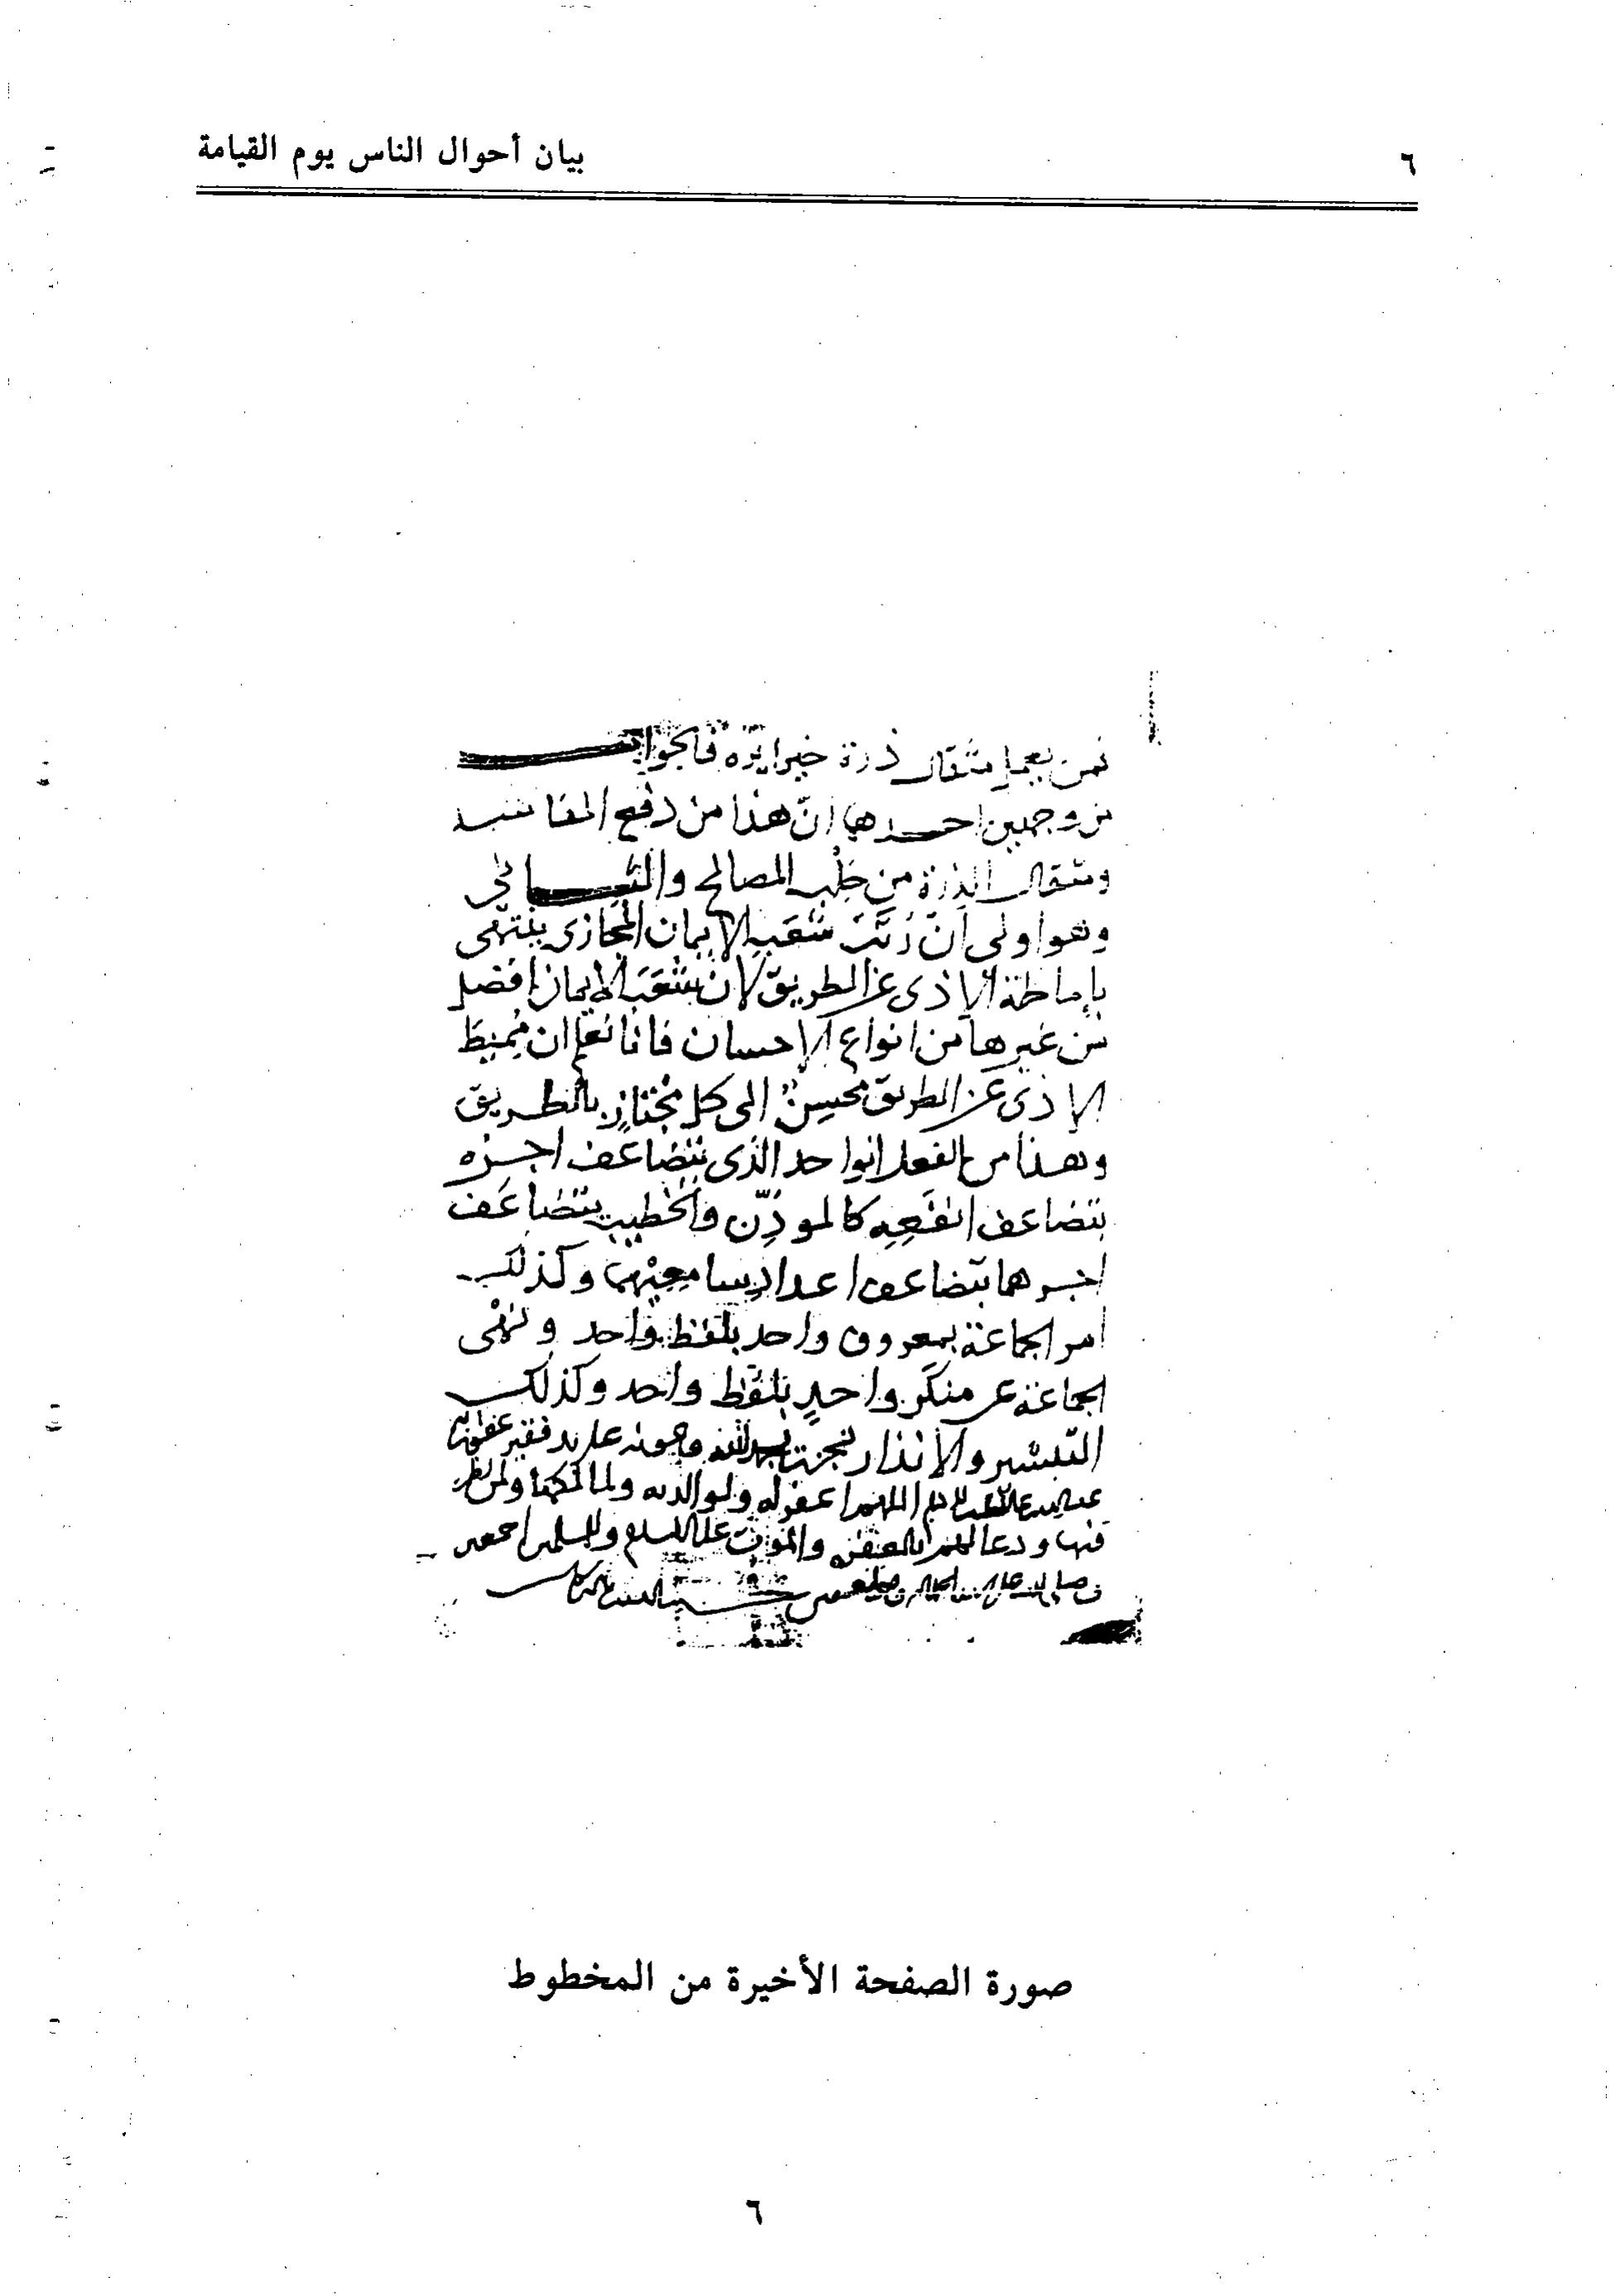 ٦
بيان أحوال الناس يوم القيامة
فمن يعمل مثقال ذرة خيرا يره فالجواب
من وجهين احدهما انّ هذا من دفع المفاسد
ومثقال الذرة من جلب المصالح والثاني
وهو اولى انّ رتب شعب الايمان المجازى ينتهى
بإماطة الاذى عن الطريق لان شعب الايمان افضل
من غيرها من انواع الاحسان فانا نعلم ان مميط
الاذى عن الطريق محسن الى كل مجتاز بالطريق
وهذا من الفعل الواحد الذى يتضاعف اجره
بتضاعف نفعه كالموذّن والخطيب يتضاعف
اجرهما بتضاعف اعداد سامعيهما وكذلك
امر الجماعة بمعروف واحد بلفظ واحد ونهى
الجماعة عن منكر واحد بلفظ واحد وكذلك
التبشير والانذار نجزت بحمد الله وعونه على يد فقير عفو الله
اللهم اغفر له ولوالديه ولمالكها ولمن نظر
فيها ودعا لهم بالمغفرة والموت على الاسلام والمسلمين اجمعين
صورة الصفحة الأخيرة من المخطوط
٦